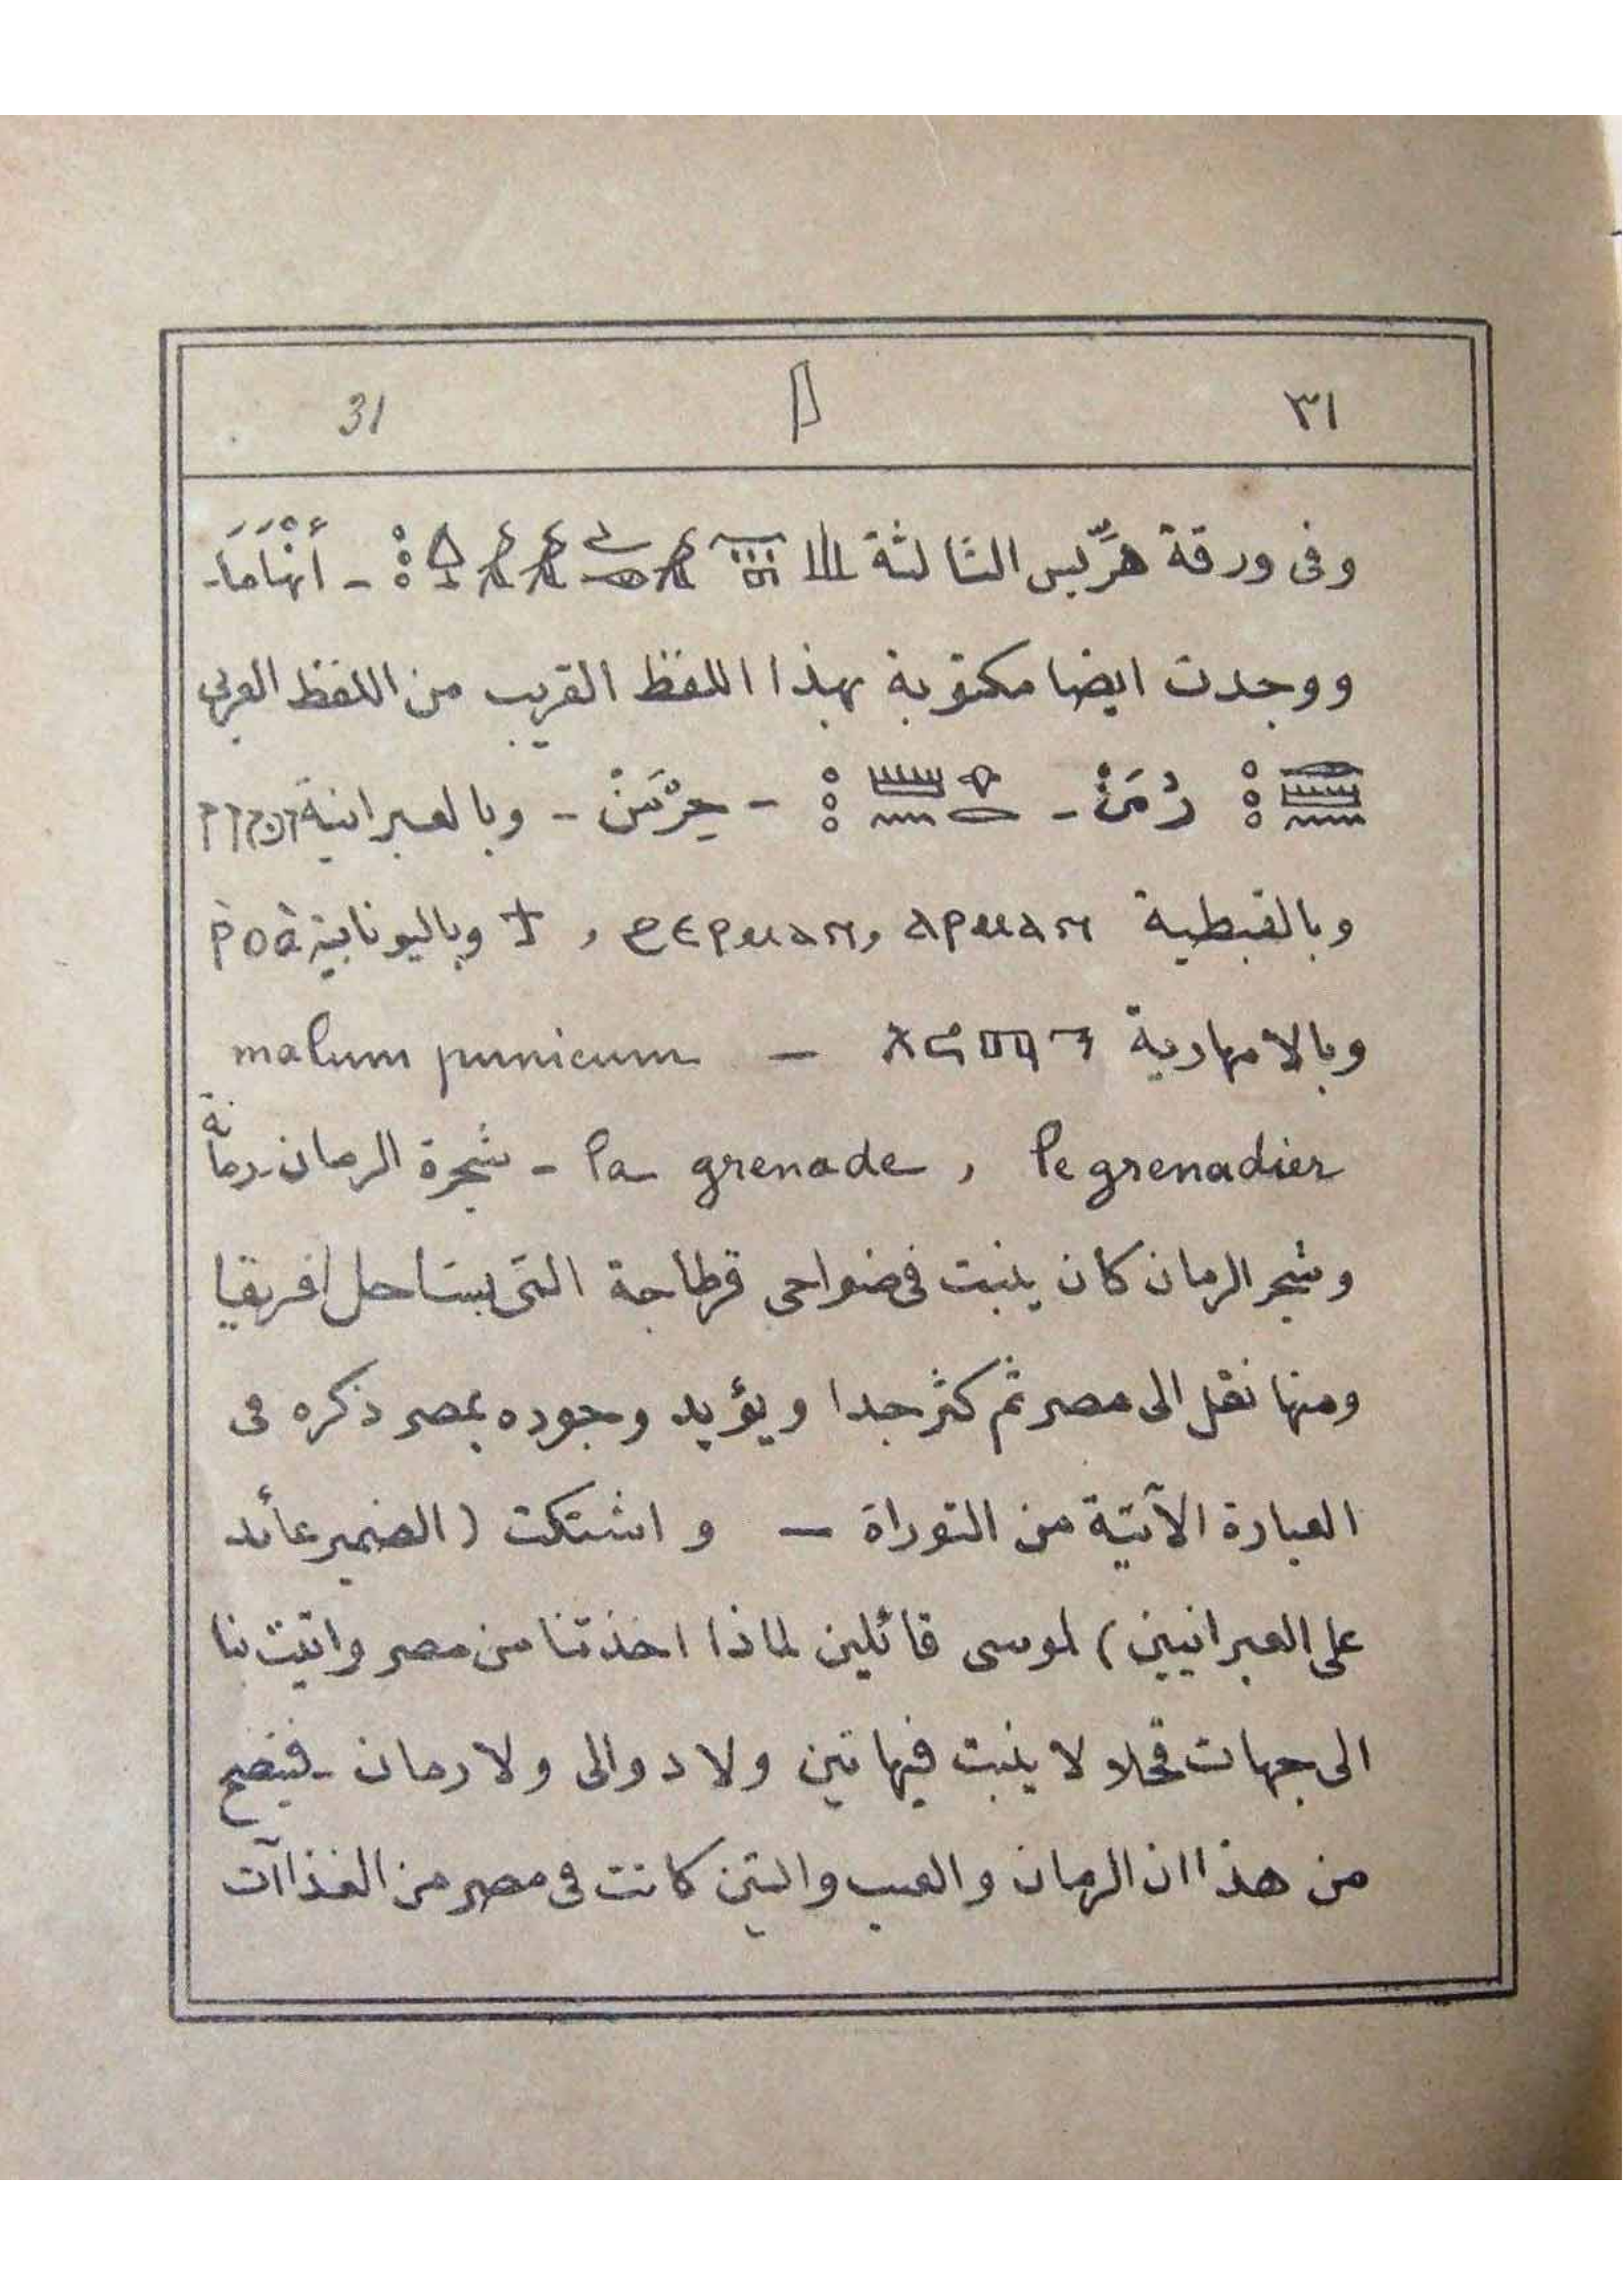 ٣١ 31
وفى ورقة هرّيس الثالثة - أَنْهَامَا -
ووجدت ايضا مكتوبة بهذا اللفظ القريب من اللفظ العربى
رُمَنْ - - حِرْمَنْ - وبالعبرانية
وبالقبطية ⲁⲣⲙⲁⲛ , ϩⲉⲣⲙⲁⲛ , ϯ وباليونانية ῥοὰ
وبالامهارية — malum punicum
le grenadier , la grenade - شجرة الرمان - رمانة
وشجر الرمان كان ينبت فى ضواحى قرطاجة التى بساحل افريقيا
ومنها نقل الى مصر ثم كثر جدا ويؤيد وجوده بمصر ذكره فى
العبارة الآتية من التوراة — واشتكت (الضمير عائد
على العبرانيين) لموسى قائلين لماذا اخذتنا من مصر واتيت بنا
الى جهات قحلا لا ينبت فيها تين ولا دوالى ولا رمان - فيتضح
من هذا ان الرمان والعنب والتين كانت فى مصر من الغذاآت